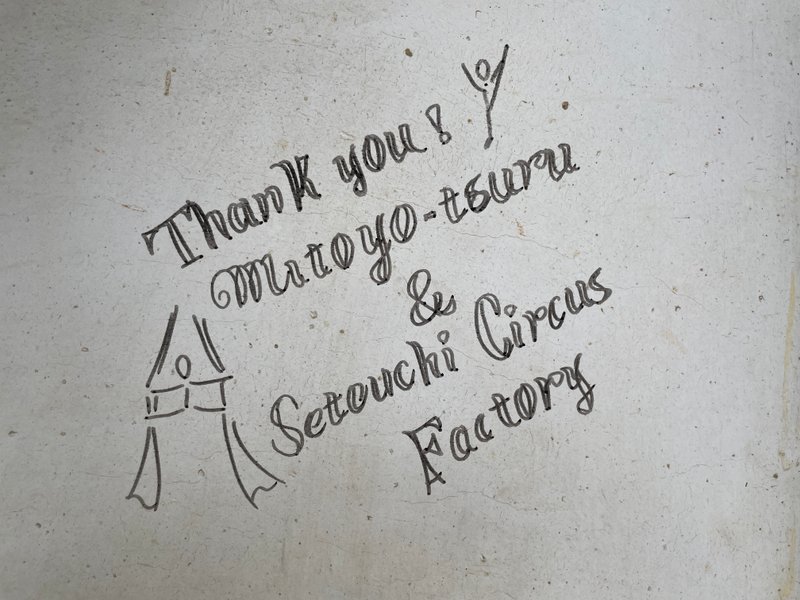 Thank you!
Mitoyo-tsuru
&
Setouchi Circus
Factory